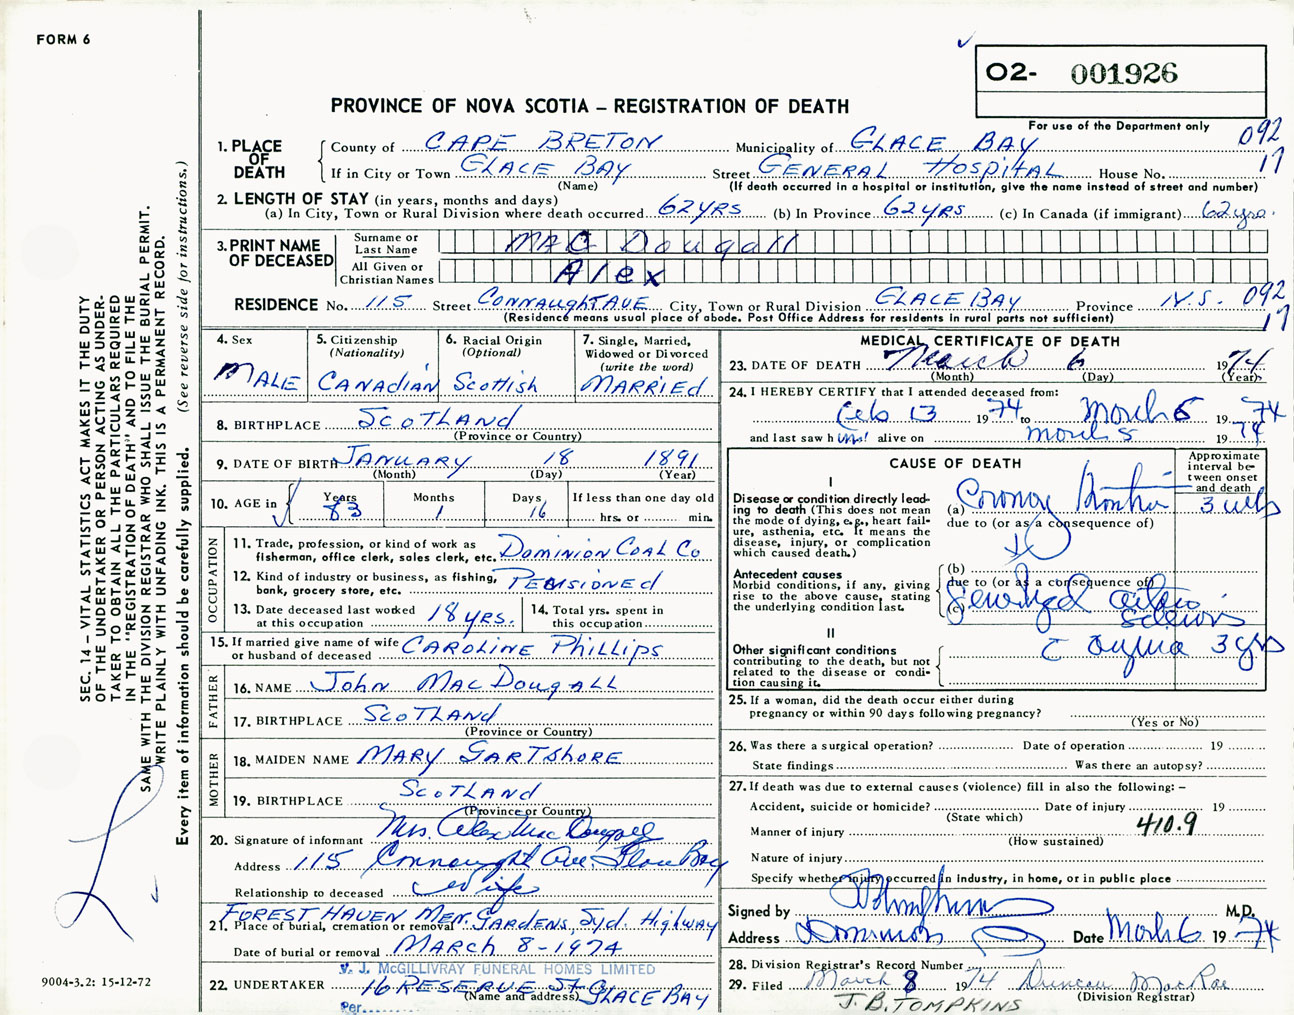 FORM 6
O2- 001926
PROVINCE OF NOVA SCOTIA – REGISTRATION OF DEATH
For use of the Department only
092
17
1. PLACE OF DEATH
County of CAPE BRETON Municipality of GLACE BAY
If in City or Town GLACE BAY Street GENERAL HOSPITAL House No.
(Name) (If death occurred in a hospital or institution, give the name instead of street and number)
2. LENGTH OF STAY (in years, months and days)
(a) In City, Town or Rural Division where death occurred 62 YRS (b) In Province 62 YRS (c) In Canada (if immigrant) 62 yrs.
3. PRINT NAME OF DECEASED
Surname or Last Name MAC Dougall
All Given or Christian Names Alex
RESIDENCE No. 115 Street CONNAUGHT AVE City, Town or Rural Division GLACE BAY Province N.S. 092
(Residence means usual place of abode. Post Office Address for residents in rural parts not sufficient) 17
4. Sex MALE
5. Citizenship (Nationality) CANADIAN
6. Racial Origin (Optional) Scottish
7. Single, Married, Widowed or Divorced (write the word) MARRIED
8. BIRTHPLACE SCOTLAND
(Province or Country)
9. DATE OF BIRTH JANUARY 18 1891
(Month) (Day) (Year)
10. AGE in Years Months Days If less than one day old
83 1 16 hrs. or min.
OCCUPATION
11. Trade, profession, or kind of work as fisherman, office clerk, sales clerk, etc. DOMINION COAL CO
12. Kind of industry or business, as fishing, bank, grocery store, etc. PENSIONED
13. Date deceased last worked at this occupation 18 YRS.
14. Total yrs. spent in this occupation
15. If married give name of wife or husband of deceased CAROLINE PHILLIPS
FATHER
16. NAME JOHN MACDOUGALL
17. BIRTHPLACE SCOTLAND
(Province or Country)
MOTHER
18. MAIDEN NAME MARY GARTSHORE
19. BIRTHPLACE SCOTLAND
(Province or Country)
20. Signature of informant Mrs. Alex MacDougall
Address 115 Connaught Ave. Glace Bay
Relationship to deceased Wife
FOREST HAVEN MEM. GARDENS, Syd. Highway
21. Place of burial, cremation or removal
Date of burial or removal MARCH 8-1974
V. J. McGILLIVRAY FUNERAL HOMES LIMITED
22. UNDERTAKER 16 RESERVE ST. GLACE BAY
(Name and address)
Per
MEDICAL CERTIFICATE OF DEATH
23. DATE OF DEATH March 6 1974
(Month) (Day) (Year)
24. I HEREBY CERTIFY that I attended deceased from:
Feb 13 1974 to March 6 1974
and last saw him alive on March 5 1974
CAUSE OF DEATH
Approximate interval between onset and death
I
Disease or condition directly leading to death (This does not mean the mode of dying, e.g., heart failure, asthenia, etc. It means the disease, injury, or complication which caused death.)
(a) Coronary 3 wks
due to (or as a consequence of)
Antecedent causes
Morbid conditions, if any, giving rise to the above cause, stating the underlying condition last.
(b)
due to (or as a consequence of)
(c)
II
Other significant conditions contributing to the death, but not related to the disease or condition causing it.
3 yrs
25. If a woman, did the death occur either during pregnancy or within 90 days following pregnancy?
(Yes or No)
26. Was there a surgical operation? Date of operation 19
State findings Was there an autopsy?
27. If death was due to external causes (violence) fill in also the following: –
Accident, suicide or homicide? Date of injury 19
(State which)
410.9
Manner of injury
(How sustained)
Nature of injury
Specify whether injury occurred in industry, in home, or in public place
Signed by M.D.
Address Dominion Date March 6 1974
28. Division Registrar's Record Number
29. Filed March 8 1974 Duncan MacRae
(Division Registrar)
J.B. TOMPKINS
SEC. 14 – VITAL STATISTICS ACT MAKES IT THE DUTY
OF THE UNDERTAKER OR PERSON ACTING AS UNDER-
TAKER TO OBTAIN ALL THE PARTICULARS REQUIRED
IN THE "REGISTRATION OF DEATH" AND TO FILE THE
SAME WITH THE DIVISION REGISTRAR WHO SHALL ISSUE THE BURIAL PERMIT.
WRITE PLAINLY WITH UNFADING INK. THIS IS A PERMANENT RECORD.
Every item of information should be carefully supplied. (See reverse side for instructions.)
9004-3.2: 15-12-72